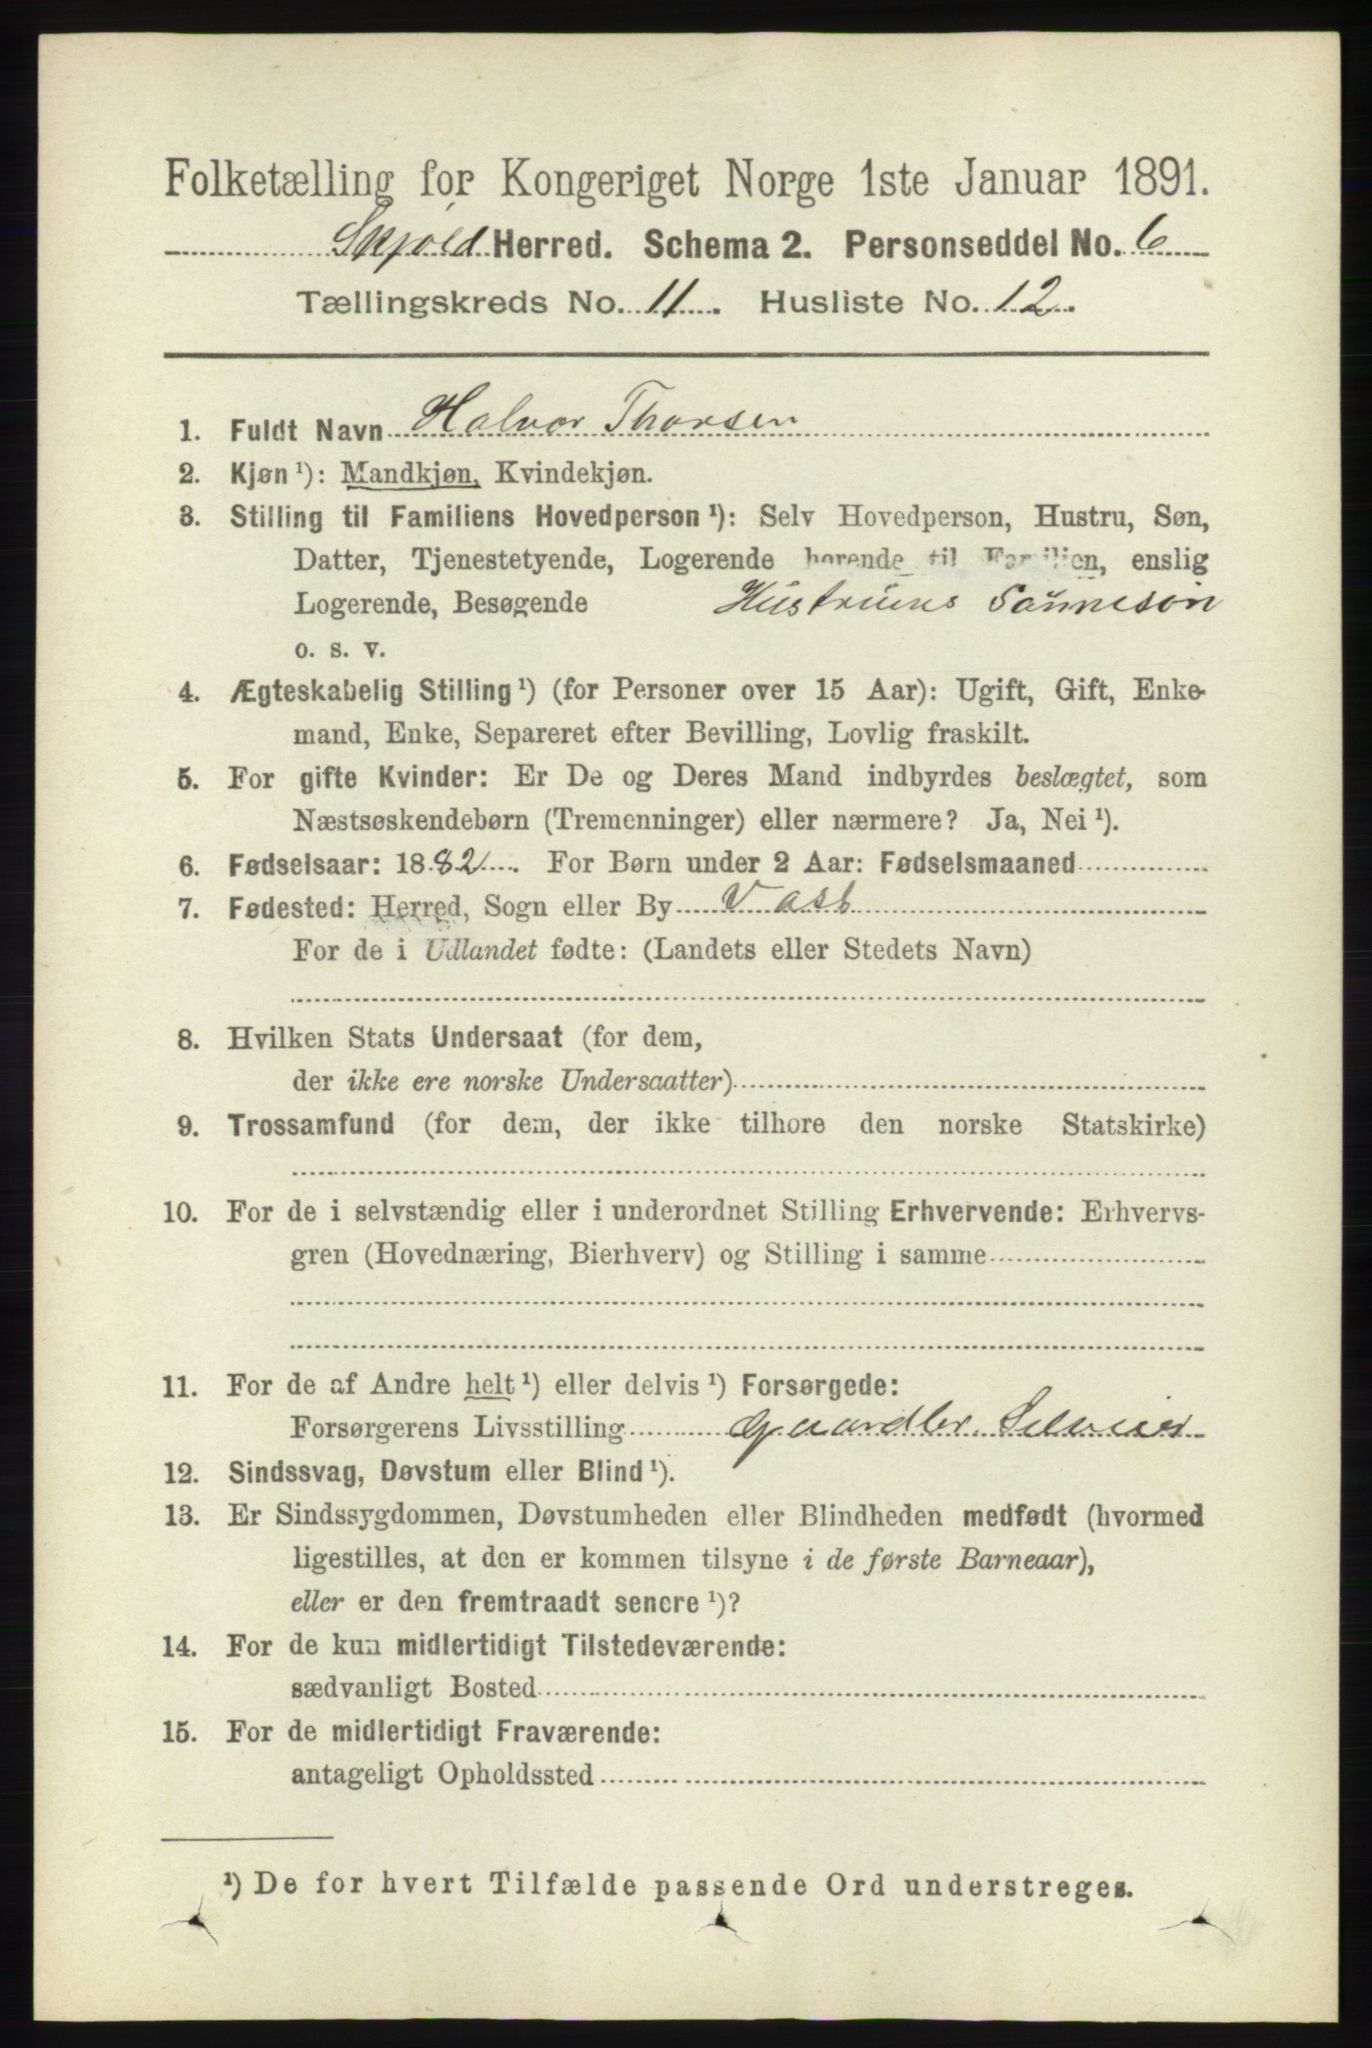 Folketælling for Kongeriget Norge 1ste Januar 1891.
Skjold Herred. Schema 2. Personseddel No. 6
Tællingskreds No. 11. Husliste No. 12.
1. Fuldt Navn Halvor Thorsen
2. Kjøn ¹): Mandkjøn, Kvindekjøn.
3. Stilling til Familiens Hovedperson ¹): Selv Hovedperson, Hustru, Søn,
Datter, Tjenestetyende, Logerende hørende til Familien, enslig
Logerende, Besøgende Hustruens Sønnesøn
o. s. v.
4. Ægteskabelig Stilling ¹) (for Personer over 15 Aar): Ugift, Gift, Enke-
mand, Enke, Separeret efter Bevilling, Lovlig fraskilt.
5. For gifte Kvinder: Er De og Deres Mand indbyrdes beslægtet, som
Næstsøskendebørn (Tremenninger) eller nærmere? Ja, Nei ¹).
6. Fødselsaar: 1882. For Børn under 2 Aar: Fødselsmaaned
7. Fødested: Herred, Sogn eller By Vats
For de i Udlandet fødte: (Landets eller Stedets Navn)
8. Hvilken Stats Undersaat (for dem,
der ikke ere norske Undersaatter)
9. Trossamfund (for dem, der ikke tilhøre den norske Statskirke)
10. For de i selvstændig eller i underordnet Stilling Erhvervende: Erhvervs-
gren (Hovednæring, Bierhverv) og Stilling i samme
11. For de af Andre helt ¹) eller delvis ¹) Forsørgede:
Forsørgerens Livsstilling Gaardbr. Selveier
12. Sindssvag, Døvstum eller Blind ¹).
13. Er Sindssygdommen, Døvstumheden eller Blindheden medfødt (hvormed
ligestilles, at den er kommen tilsyne i de første Barneaar),
eller er den fremtraadt senere ¹)?
14. For de kun midlertidigt Tilstedeværende:
sædvanligt Bosted
15. For de midlertidigt Fraværende:
antageligt Opholdssted
¹) De for hvert Tilfælde passende Ord understreges.